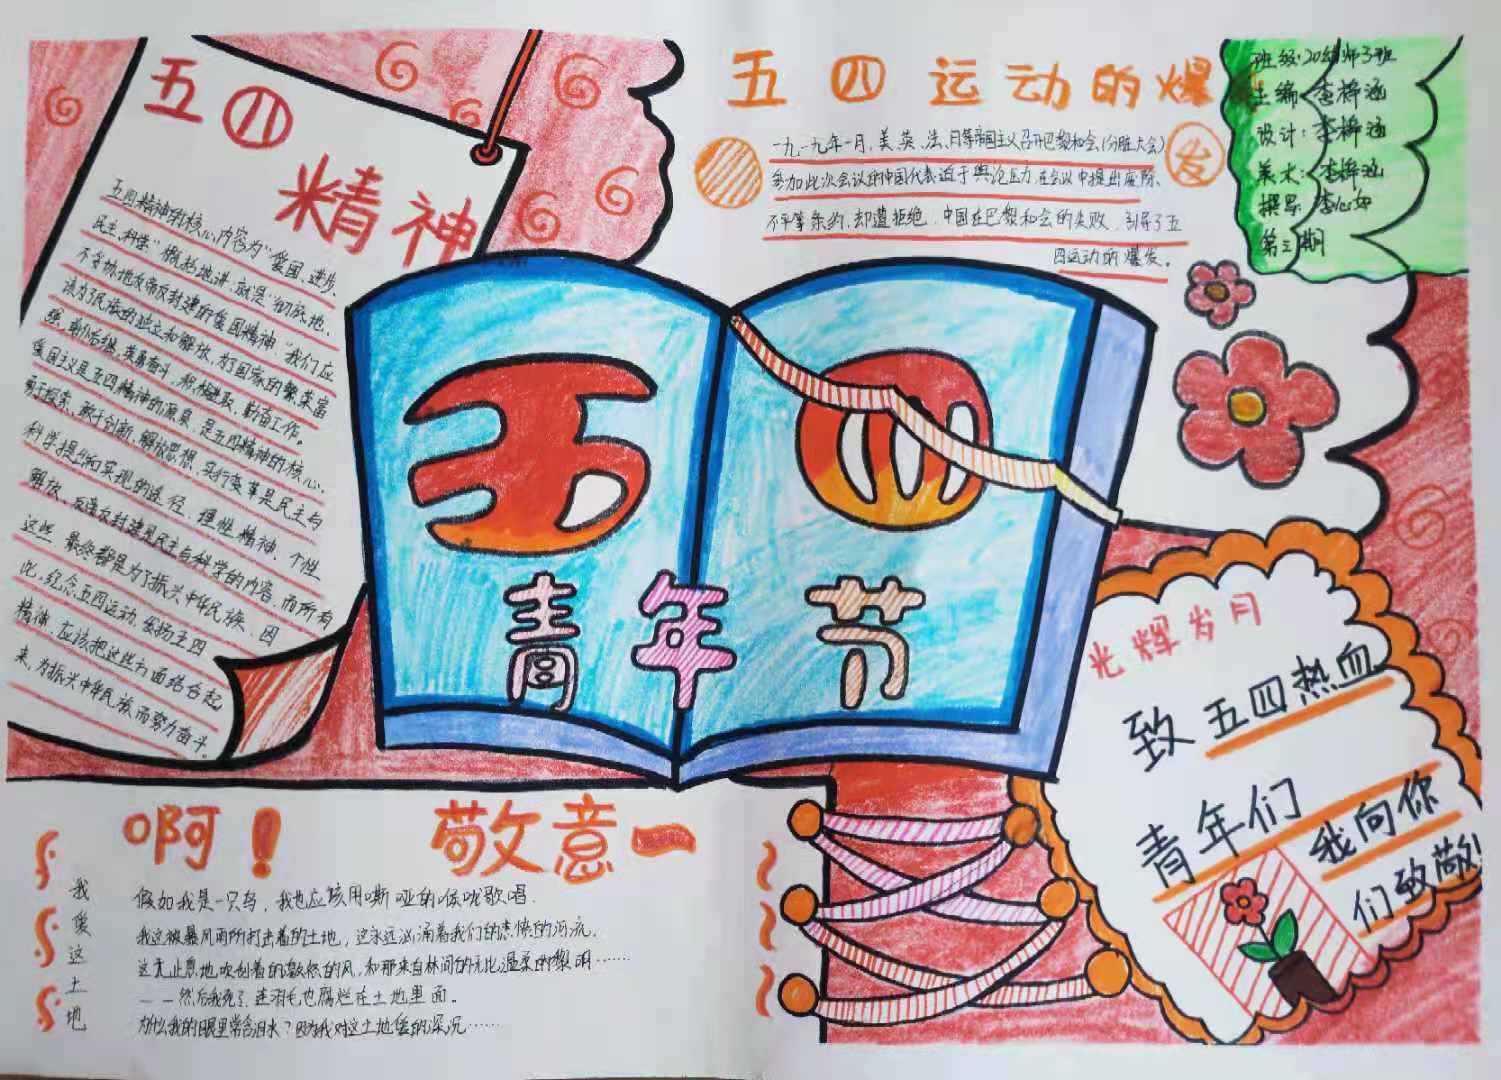 五四
精神
五四精神的核心内容为“爱国、进步、
民主、科学”概括地讲，就是“彻底地、
不妥协地反帝反封建的爱国精神．”我们应
该为了民族的独立和解放，为了国家的繁荣富
强，前仆后继，英勇奋斗，积极进取，勤奋工作。
爱国主义是五四精神的源泉，是五四精神的核心．
勇于探索、敢于创新、解放思想、实行变革是民主与
科学提出和实现的途径，理性精神、个性
解放、反帝反封建是民主与科学的内容．而所有
这些，最终都是为了振兴中华民族．因
此，纪念五四运动，发扬五四
精神，应该把这些方面结合起
来，为振兴中华民族而努力奋斗。
五四运动的爆
发
一九一九年一月，美、英、法、日等帝国主义召开巴黎和会（分脏大会）
参加此次会议的中国代表迫于舆论压力，在会议中提出废除、
不平等条约，却遭拒绝．中国在巴黎和会的失败．引导了五
四运动的爆发。
班级：20幼师3班
主编：李梓涵
设计：李梓涵
美术：李梓涵
撰写：李心如
第三期
五四
青年节
光辉岁月
致五四热血
青年们
我向你
们致敬！
啊！ 敬意一
我爱这土地
假如我是一只鸟，我也应该用嘶哑的喉咙歌唱．
我这被暴风雨所打击着的土地，这永远汹涌着我们的悲愤的河流．
这无止息地吹刮着的激怒的风，和那来自林间的无比温柔的黎明……
——然后我死了，连羽毛也腐烂在土地里面。
为什么我的眼里常含泪水？因为我对这土地爱的深沉……